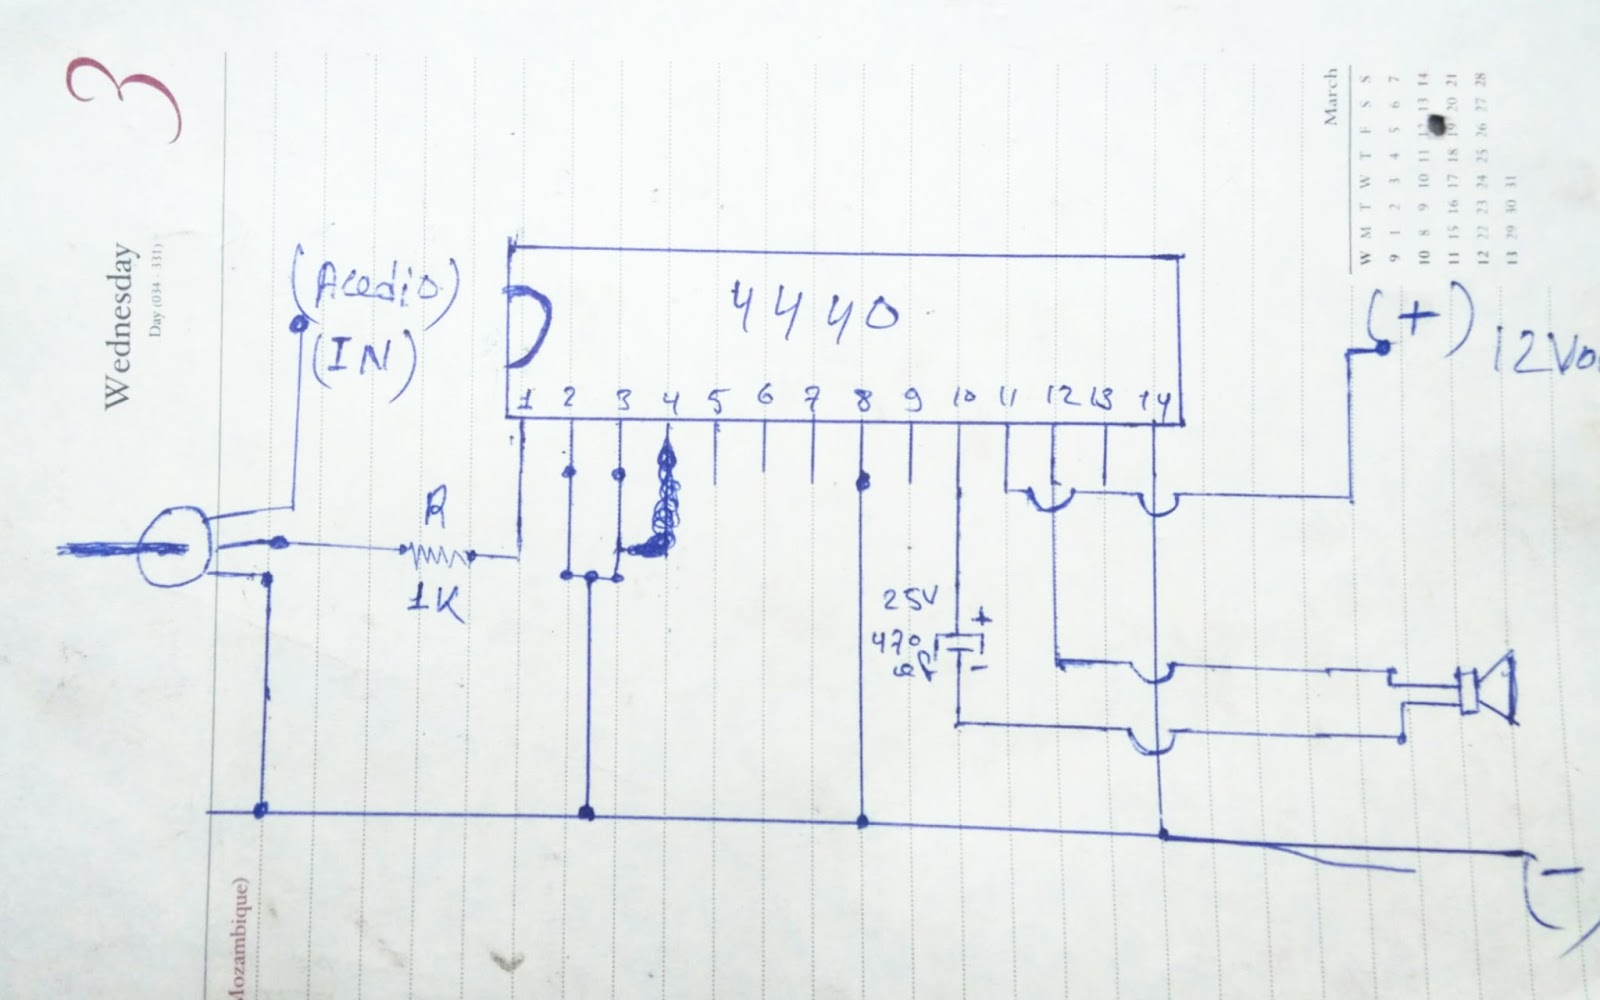 3
Wednesday
Day (034 - 331)
March
W M T W T F S S
9 1 2 3 4 5 6 7
10 8 9 10 11 12 13 14
11 15 16 17 18 19 20 21
12 22 23 24 25 26 27 28
13 29 30 31
(Acedio)
(IN)
4440
(+)
12Vo
1 2 3 4 5 6 7 8 9 10 11 12 13 14
R
1K
25V
470
+
-
(-)
Mozambique)